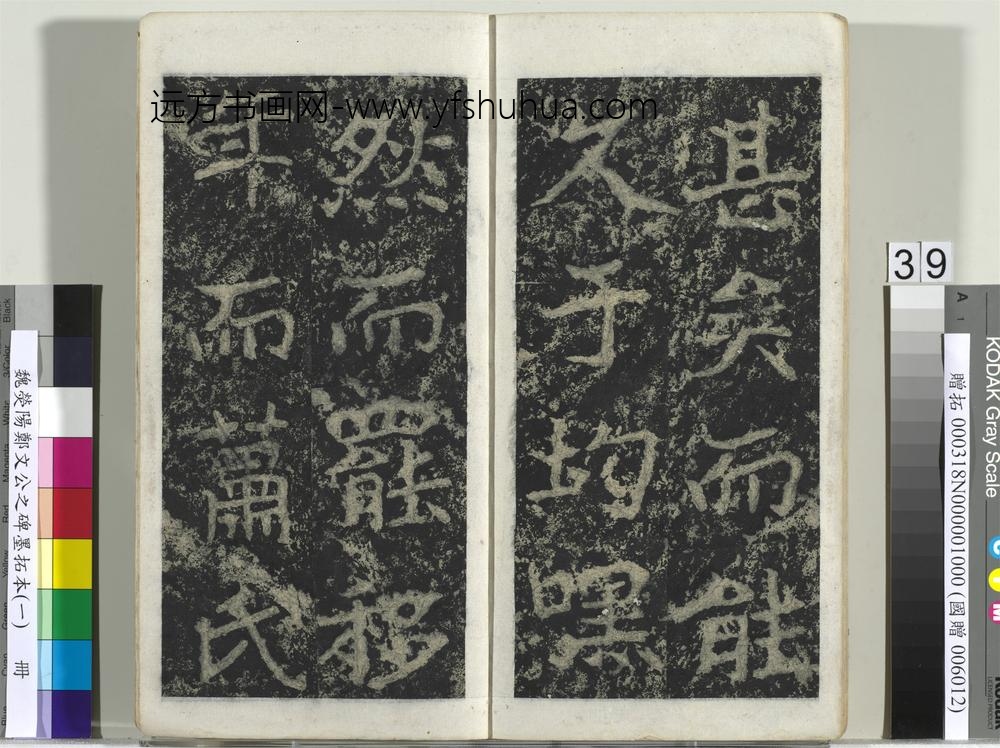 远方书画网-www.yfshuhua.com
甚矣而能
久于均嘿
然而罷移
年而蕭氏
39
KODAK Gray Scale
A 1
贈拓 000318N000001000 (國贈 006012)
魏滎陽鄭文公之碑墨拓本(一) 冊
Black
3/Color
White
Magenta
Red
Yellow
Green
Cyan
Blue